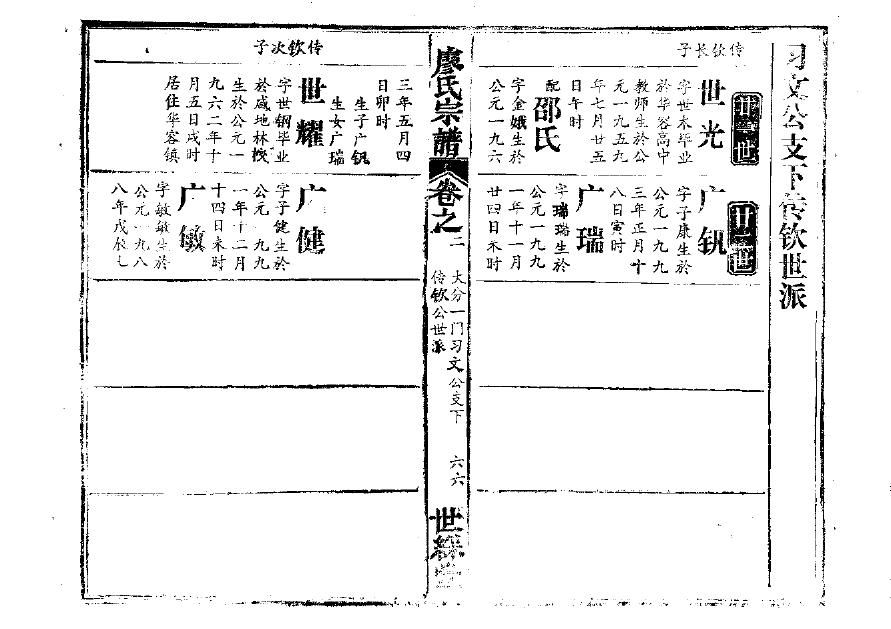 习文公支下传钦世派
传钦长子
廿世
世光
字世木毕业
於华容高中
教师生於公
元一九五九
年七月廿五
日午时
配邵氏
字金娥生於
公元一九六
三年五月四
日卯时
生子广钒
生女广瑞
廿一世
广钒
字子康生於
公元一九九
三年正月十
八日寅时
广瑞
字瑞瑞生於
公元一九九
一年十一月
廿四日未时
廖氏宗譜
卷之二
大分一门习文公支下
传钦公世派
六六
世綵堂
传钦次子
世耀
字世钢毕业
於咸地林校
生於公元一
九六二年十
月五日戌时
居住华容镇
广健
字子健生於
公元一九九
一年十二月
十四日未时
广敏
字敏敏生於
公元一九八
八年戌辰七